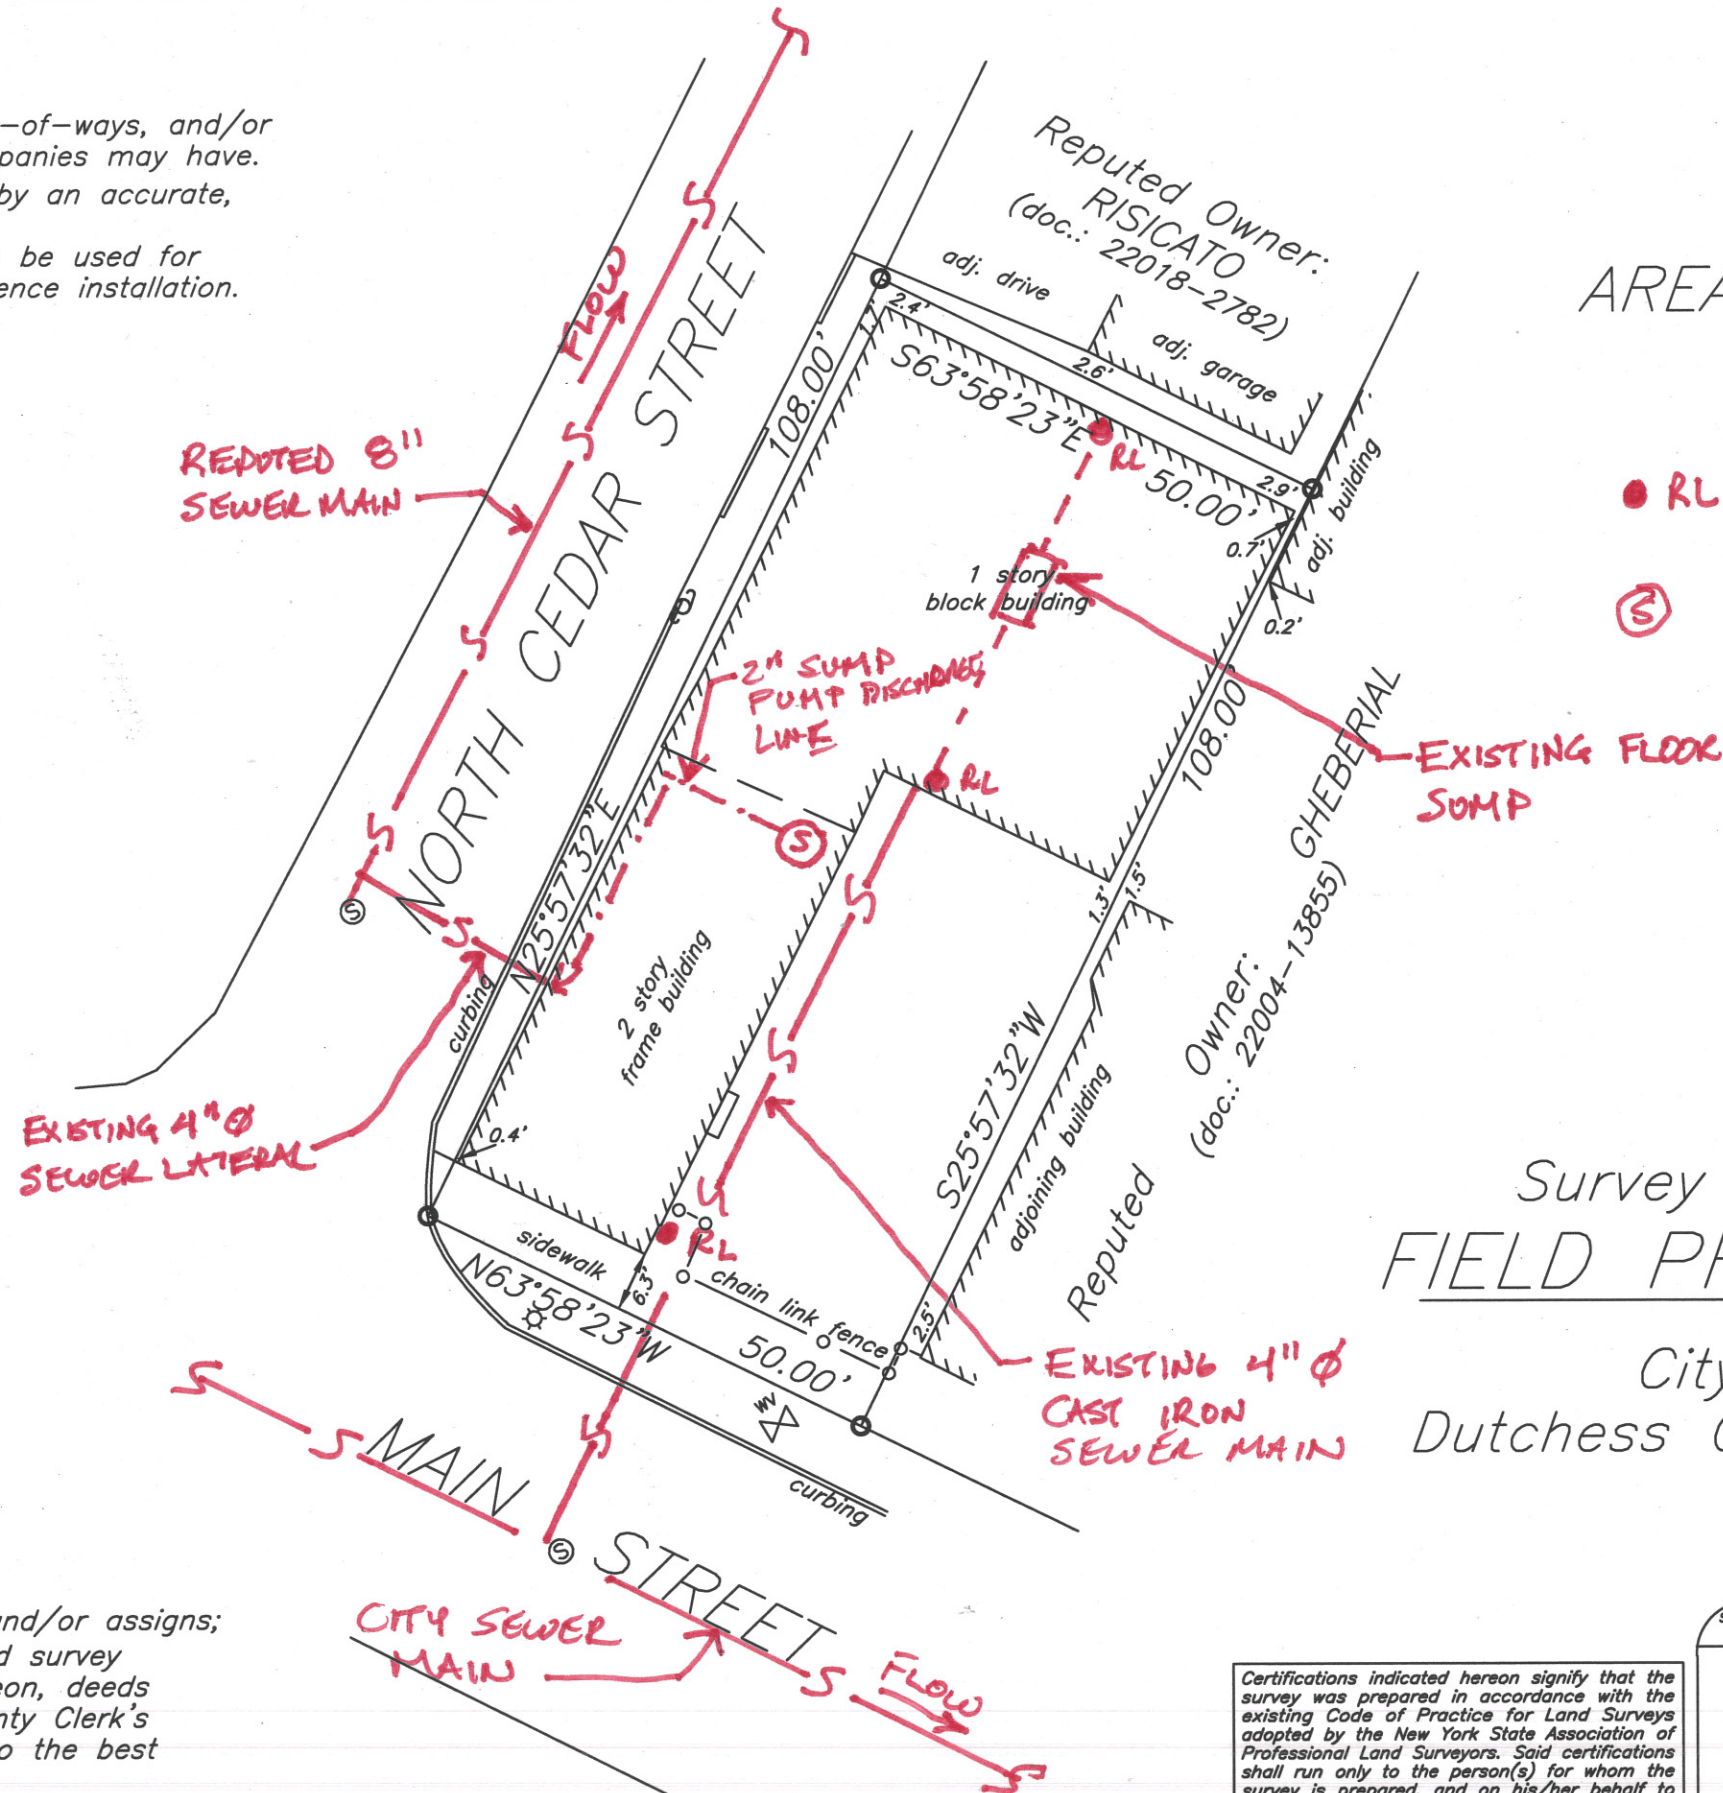 -of-ways, and/or
panies may have.
by an accurate,
be used for
ence installation.
FLOW
NORTH CEDAR STREET
REPUTED 8"
SEWER MAIN
Reputed Owner:
RISICATO
(doc.: 22018-2782)
adj. drive
adj. garage
adj. building
AREA
2.4'
1.7'
2.6'
2.9'
108.00'
S63°58'23"E
50.00'
RL
● RL
0.7'
0.2'
S
1 story
block building
2" SUMP
PUMP DISCHARGE
LINE
RL
S
EXISTING FLOOR
SUMP
108.00'
N25°57'32"E
S
curbing
2 story
frame building
1.3'
1.5'
S25°57'32"W
adjoining building
Reputed Owner: GHEBERIAL
(doc.: 22004-13855)
EXISTING 4"Ø
SEWER LATERAL
0.4'
RL
sidewalk
6.3'
chain link fence
2.5'
N63°58'23"W
50.00'
WV
curbing
EXISTING 4" Ø
CAST IRON
SEWER MAIN
Survey
FIELD PR
City
Dutchess C
MAIN STREET
S
CITY SEWER
MAIN
FLOW
and/or assigns;
d survey
eon, deeds
nty Clerk's
o the best
Certifications indicated hereon signify that the
survey was prepared in accordance with the
existing Code of Practice for Land Surveys
adopted by the New York State Association of
Professional Land Surveyors. Said certifications
shall run only to the person(s) for whom the
survey is prepared, and on his/her behalf to